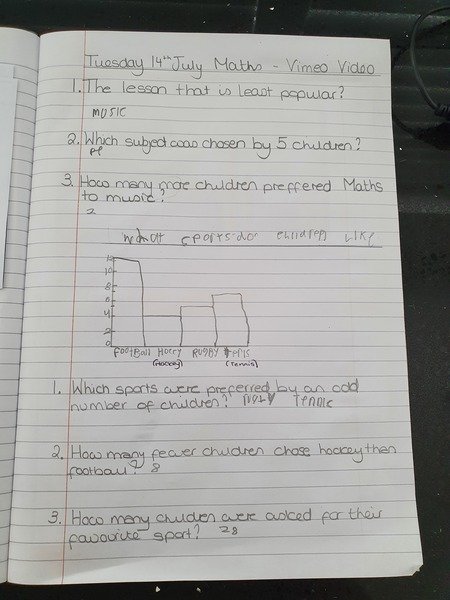 Tuesday 14th July Maths - Vimeo Video
1. The lesson that is least popular?
music
2. Which subject was chosen by 5 children?
PE
3. How many more children preffered Maths
to music?
2
sports children like
12
10
8
6
4
2
0
football Hocey Rugby
(Hockey) (Tennis)
1. Which sports were preferred by an odd
number of children? tennic
2. How many fewer children chose hockey then
football? 8
3. How many children were asked for their
favourite sport? 28